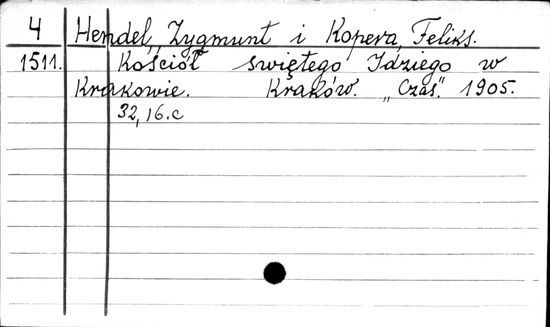 4 Hendel, Zygmunt i Kopera, Feliks.
1511. Kościół świętego Idziego w
Krakowie. Kraków. „Czas". 1905.
32,16.c